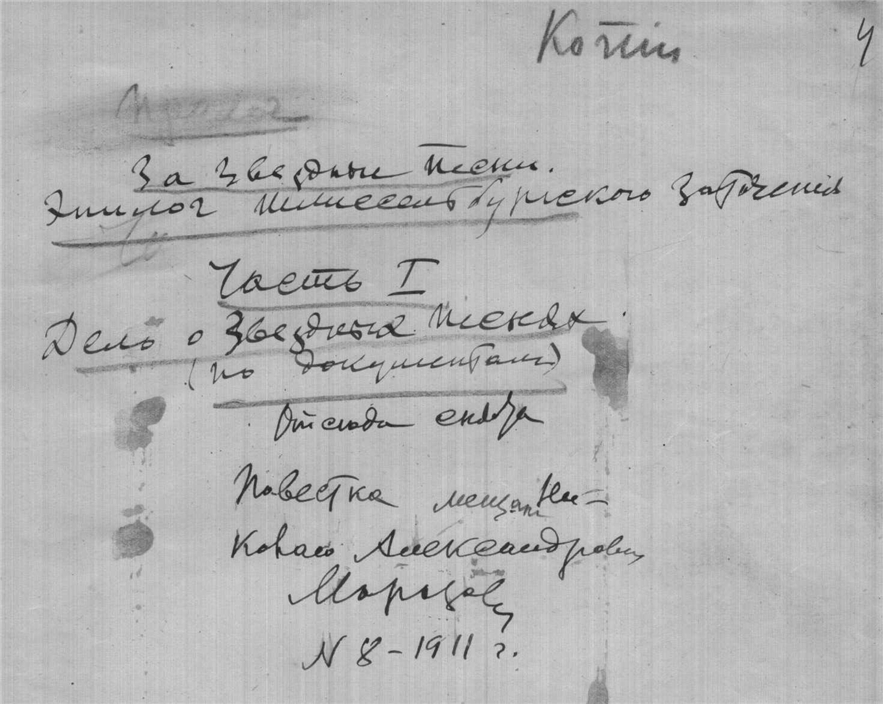 Копии 4
Пролог
За Звездные песни.
Эпилог Шлиссельбургского заточения
Часть I
Дело о Звездных песнях.
(по документам)
Отсюда
Повестка мещан Ни-
колаю Александровичу
Морозову
N 8-1911 г.